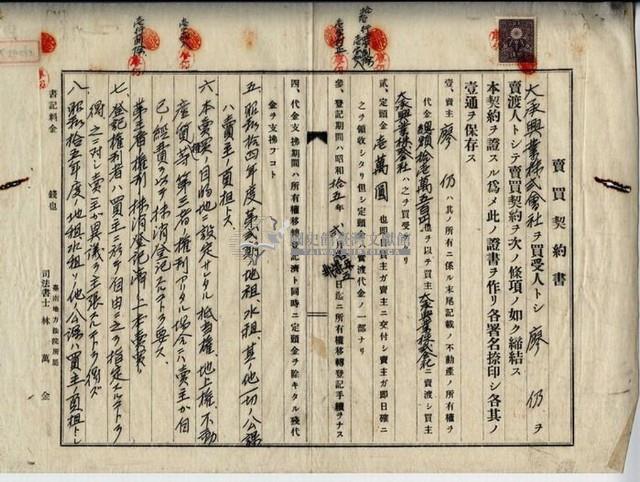 賣買契約書
大承興業株式會社ヲ買受人トシ廖仍ヲ
賣渡人トシテ賣買契約ヲ次ノ條項ノ如ク締結ス
本契約ヲ證スル爲メ此ノ證書ヲ作リ各署名捺印シ各其ノ
壹通ヲ保存ス
壹、賣主廖仍ハ其ノ所有ニ係ル末尾記載ノ不動產ノ所有權ヲ
代金總額拾壱萬五百円也ヲ以テ買主大承興業株式会社ニ賣渡シ買主
大承興業株式会社ハ之ヲ買受ケタリ
貳、定頭金壱萬圓也即日買主ガ賣主ニ交付シ賣主ガ即日確ニ
之ヲ領收シタリ但シ定頭金ハ賣渡代金ノ一部ナリ
參、登記期間ハ昭和拾五年日迄ニ所有權移轉登記手續ヲナス
四、代金支拂期間ハ所有權移轉登記濟ト同時ニ定頭金ヲ除キタル殘代
金ヲ支拂フコト
五、昭和拾四年度第貳期地租、水租、其ノ他一切ノ公課
ハ賣主ノ負担トス
六、本賣買ノ目的地ニ設定サレタル抵当權、地上權、不動
產質等第三者ノ權利アリタル場合ニハ賣主ガ自
己ノ經費ヲ以テ抹消登記スルコトヲ要ス
第三者ノ權利抹消登記濟ノ上本賣買ノ
七、登記權利者ハ買主ニ於テ自由ニ之ヲ指定スルコトヲ
得之ニ対シ賣主ガ異議ヲ主張スルコトヲ得ズ
八、昭和拾五年度地租水租ソノ他公課ハ買主負担トシ
書記料金 錢也
臺南地方法院所屬
司法書士 林萬金